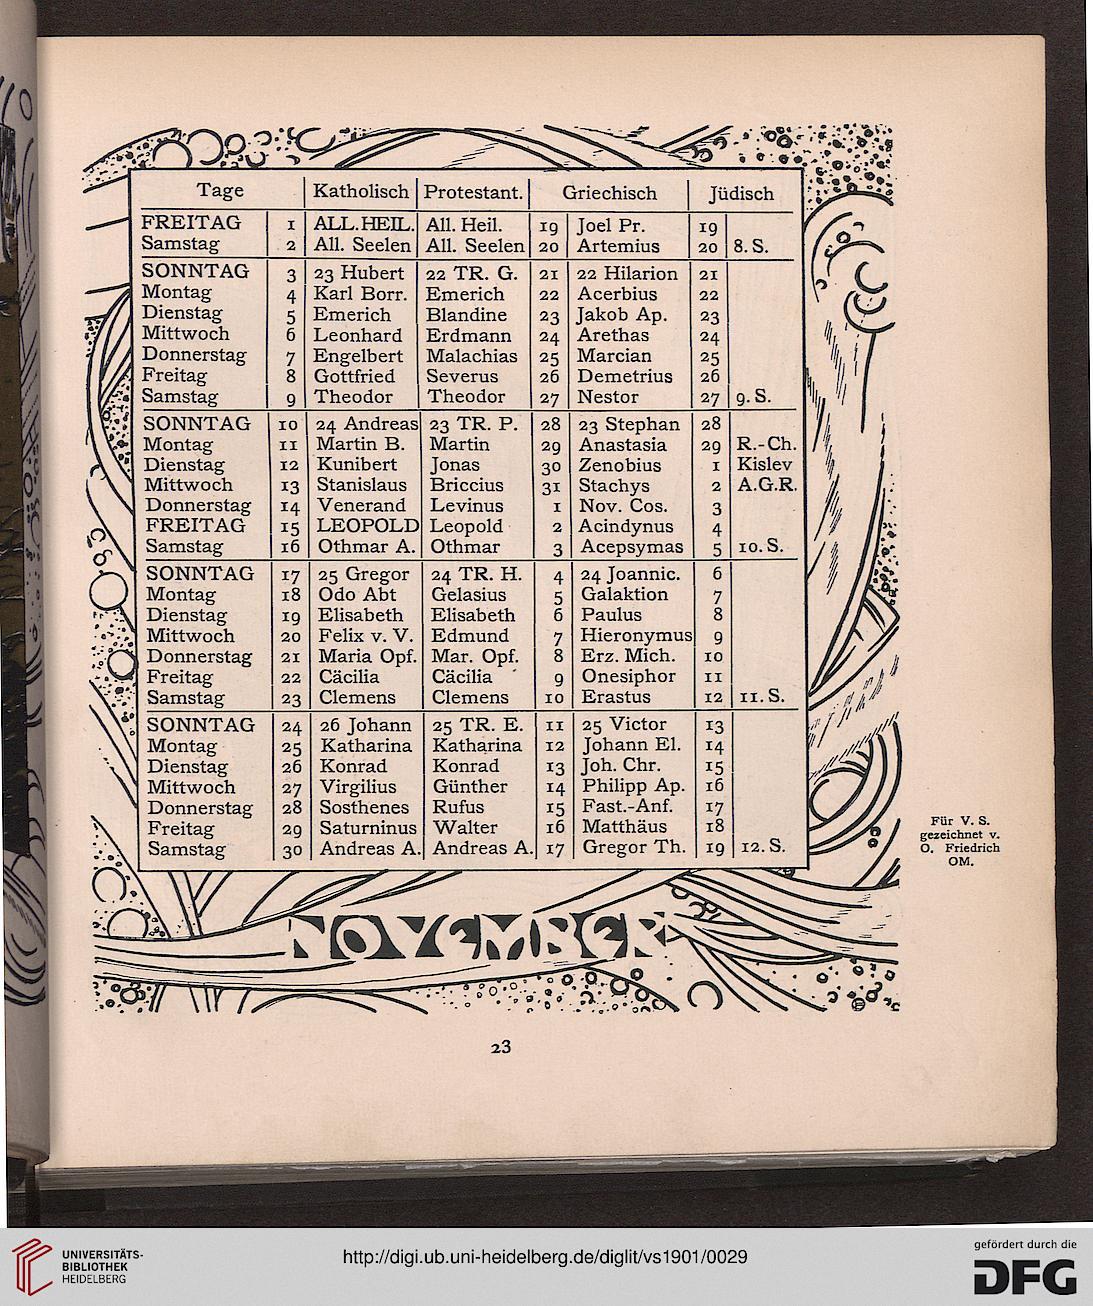 Tage Katholisch Protestant. Griechisch Jüdisch
FREITAG 1 ALL. HEIL. All. Heil. 19 Joel Pr. 19
Samstag 2 All. Seelen All. Seelen 20 Artemius 20 8. S.
SONNTAG 3 23 Hubert 22 TR. G. 21 22 Hilarion 21
Montag 4 Karl Borr. Emerich 22 Acerbius 22
Dienstag 5 Emerich Blandine 23 Jakob Ap. 23
Mittwoch 6 Leonhard Erdmann 24 Arethas 24
Donnerstag 7 Engelbert Malachias 25 Marcian 25
Freitag 8 Gottfried Severus 26 Demetrius 26
Samstag 9 Theodor Theodor 27 Nestor 27 9. S.
SONNTAG 10 24 Andreas 23 TR. P. 28 23 Stephan 28
Montag 11 Martin B. Martin 29 Anastasia 29 R.-Ch.
Dienstag 12 Kunibert Jonas 30 Zenobius 1 Kislev
Mittwoch 13 Stanislaus Briccius 31 Stachys 2 A.G.R.
Donnerstag 14 Venerand Levinus 1 Nov. Cos. 3
FREITAG 15 LEOPOLD Leopold 2 Acindynus 4
Samstag 16 Othmar A. Othmar 3 Acepsymas 5 10. S.
SONNTAG 17 25 Gregor 24 TR. H. 4 24 Joannic. 6
Montag 18 Odo Abt Gelasius 5 Galaktion 7
Dienstag 19 Elisabeth Elisabeth 6 Paulus 8
Mittwoch 20 Felix v. V. Edmund 7 Hieronymus 9
Donnerstag 21 Maria Opf. Mar. Opf. 8 Erz. Mich. 10
Freitag 22 Cäcilia Cäcilia 9 Onesiphor 11
Samstag 23 Clemens Clemens 10 Erastus 12 11. S.
SONNTAG 24 26 Johann 25 TR. E. 11 25 Victor 13
Montag 25 Katharina Katharina 12 Johann El. 14
Dienstag 26 Konrad Konrad 13 Joh. Chr. 15
Mittwoch 27 Virgilius Günther 14 Philipp Ap. 16
Donnerstag 28 Sosthenes Rufus 15 Fast.-Anf. 17
Freitag 29 Saturninus Walter 16 Matthäus 18
Samstag 30 Andreas A. Andreas A. 17 Gregor Th. 19 12. S.
Für V. S.
gezeichnet v.
O. Friedrich
OM.
NOVEMBER
23
UNIVERSITÄTS-
BIBLIOTHEK
HEIDELBERG
http://digi.ub.uni-heidelberg.de/diglit/vs1901/0029
gefördert durch die
DFG